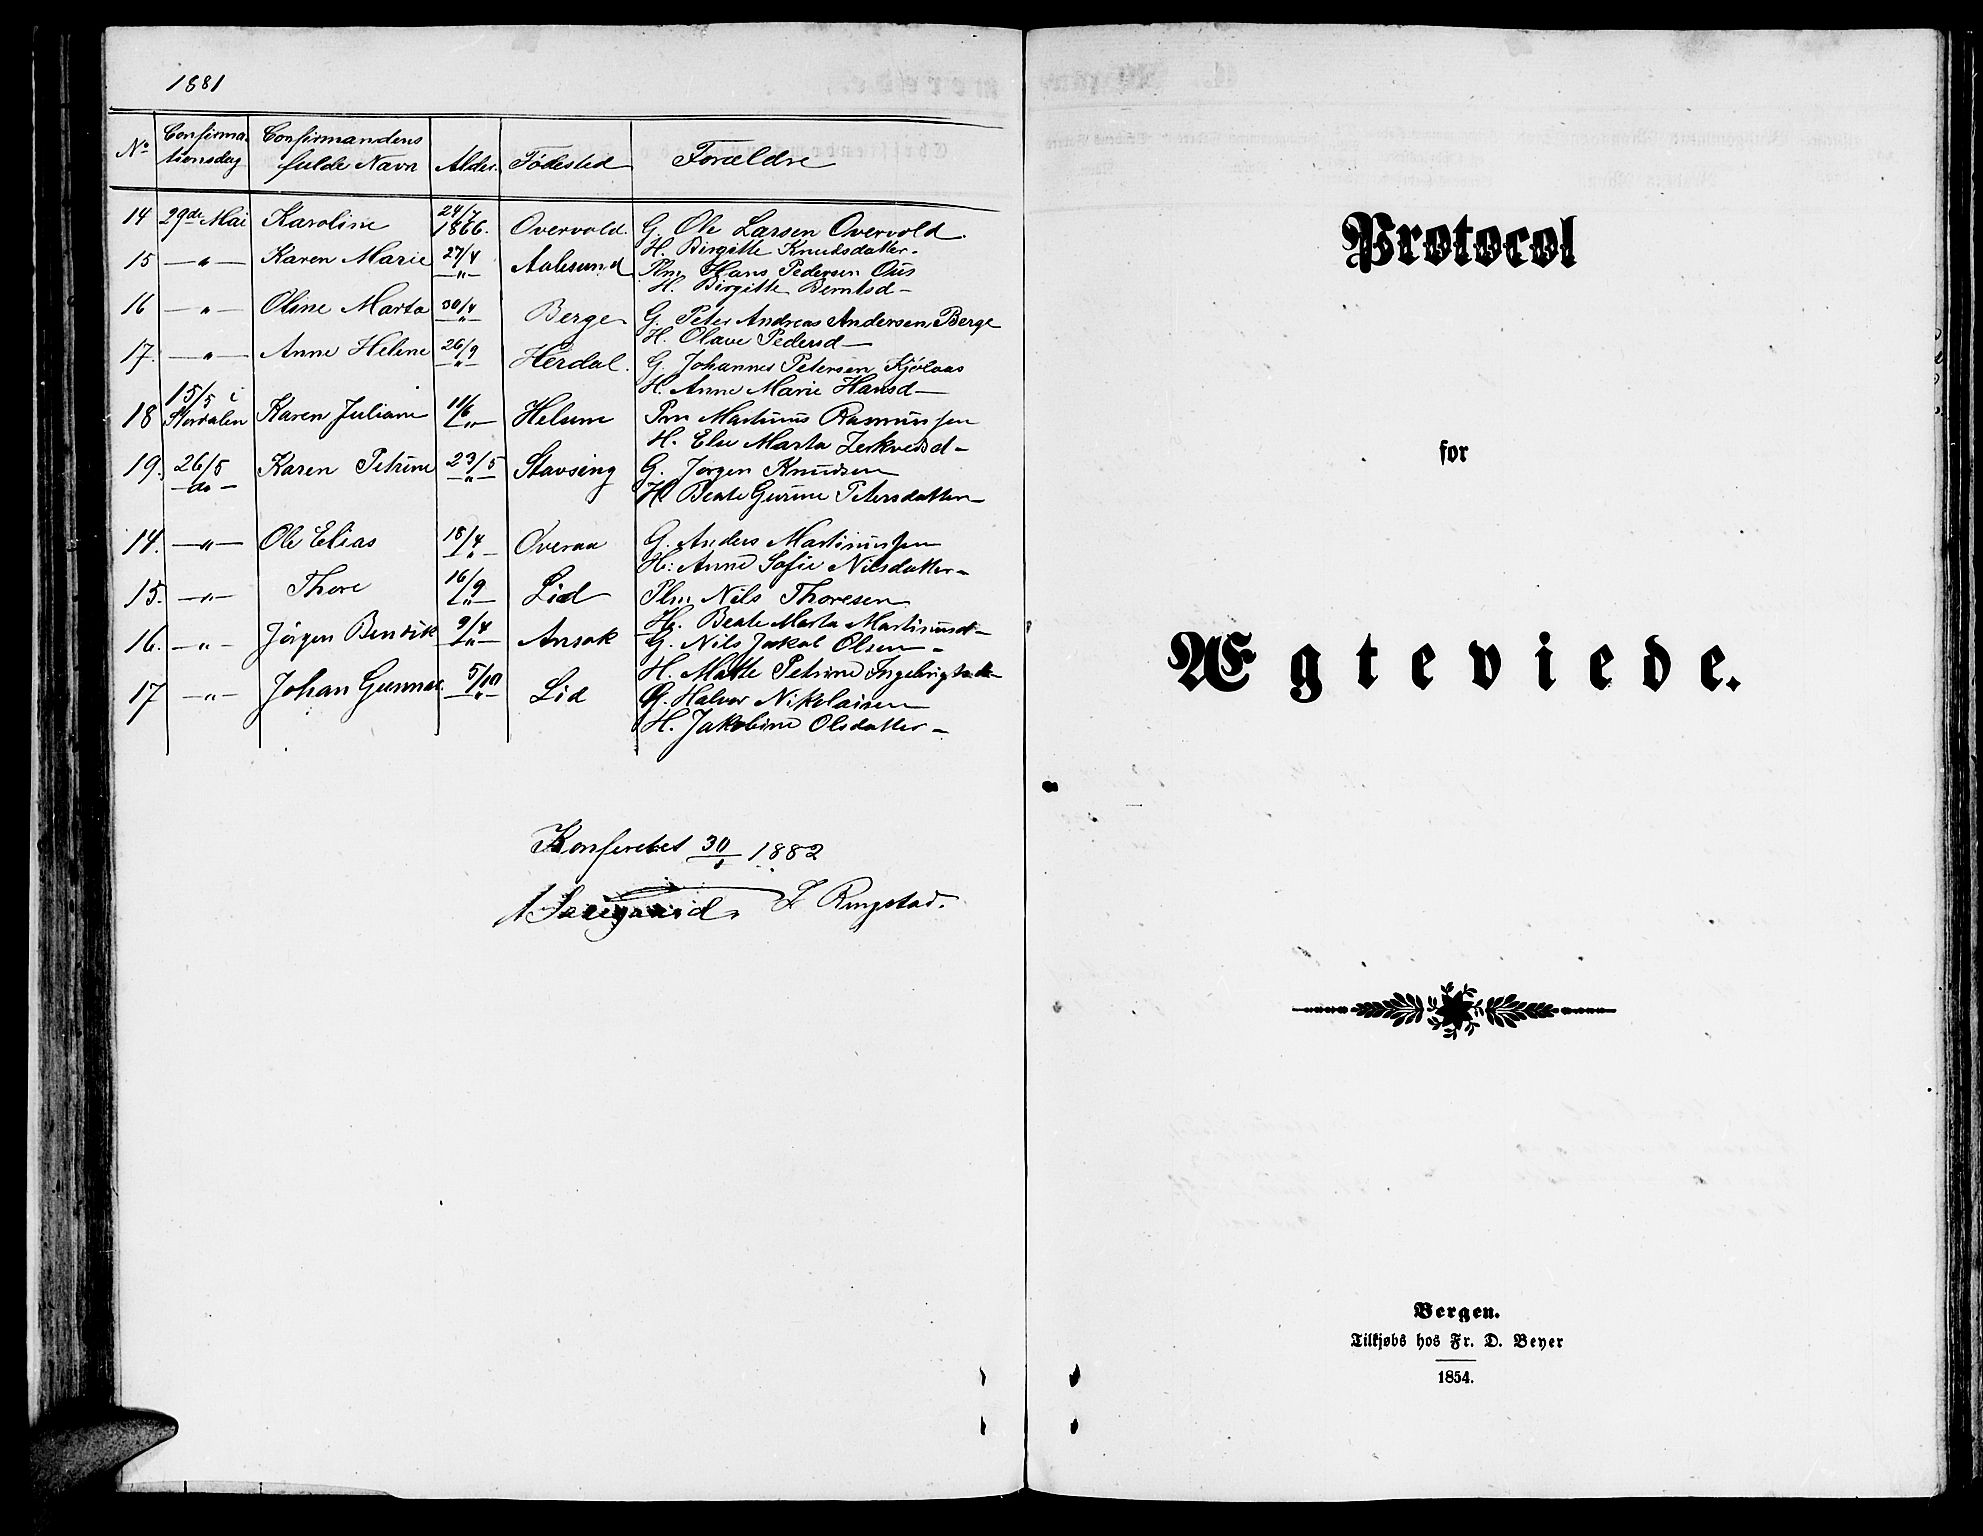 1881
No Confirma- Confirmandens
tionsdag fulde Navn Alder. Födested Forældre
14 29de Mai Karoline 24/7 1866. Overvold. G. Ole Larsen Overvold.
H. Birgitte Knudsdatter.
15 — " — Karen Marie 27/4 — " — Aalesund Plm Hans Pedersen Ous
H. Birgitte Berntsd —
16 — " — Oline Marta 30/4 — " — Berge G. Peter Andreas Andersen Berge
H. Olave Pedersd —
17. — " — Anne Helene 26/9 — " — Herdal. G. Johannes Petersen Kjölaas
H. Anne Marie Hansd —
18 15/5 i Stordalen Karen Juliane 11/6 — " — Helsem Pm Martinus Rasmussen
H. Else Marta
19. 26/5 — do — Karen Petrine 23/5 — " — Stavseng G. Jörgen Knudsen
H. Beate Gurine Petersdatter —
14. — " — Ole Elias 18/4 — " — Överaa G. Anders Martinussen
H: Anne Sofie Nilsdatter —
15. — " — Thore 16/9 — " — Lid Plm Nils Thoresen
H. Beate Marta Martinusd —
16. — " — Jörgen Bendik 9/4 — " — Ansok G. Nils Jakob Olsen —
H. Mette Petrine
17 — " — Johan Gunnar 5/10 — " — Lid G. Halvor Nikolaisen
H. Jakobine Olsdatter —
Konfereret 30/1 1882
L Ringstad.
Protocol
for
Ægteviede.
Bergen.
Tilkjøbs hos Fr. D. Beyer
1854.